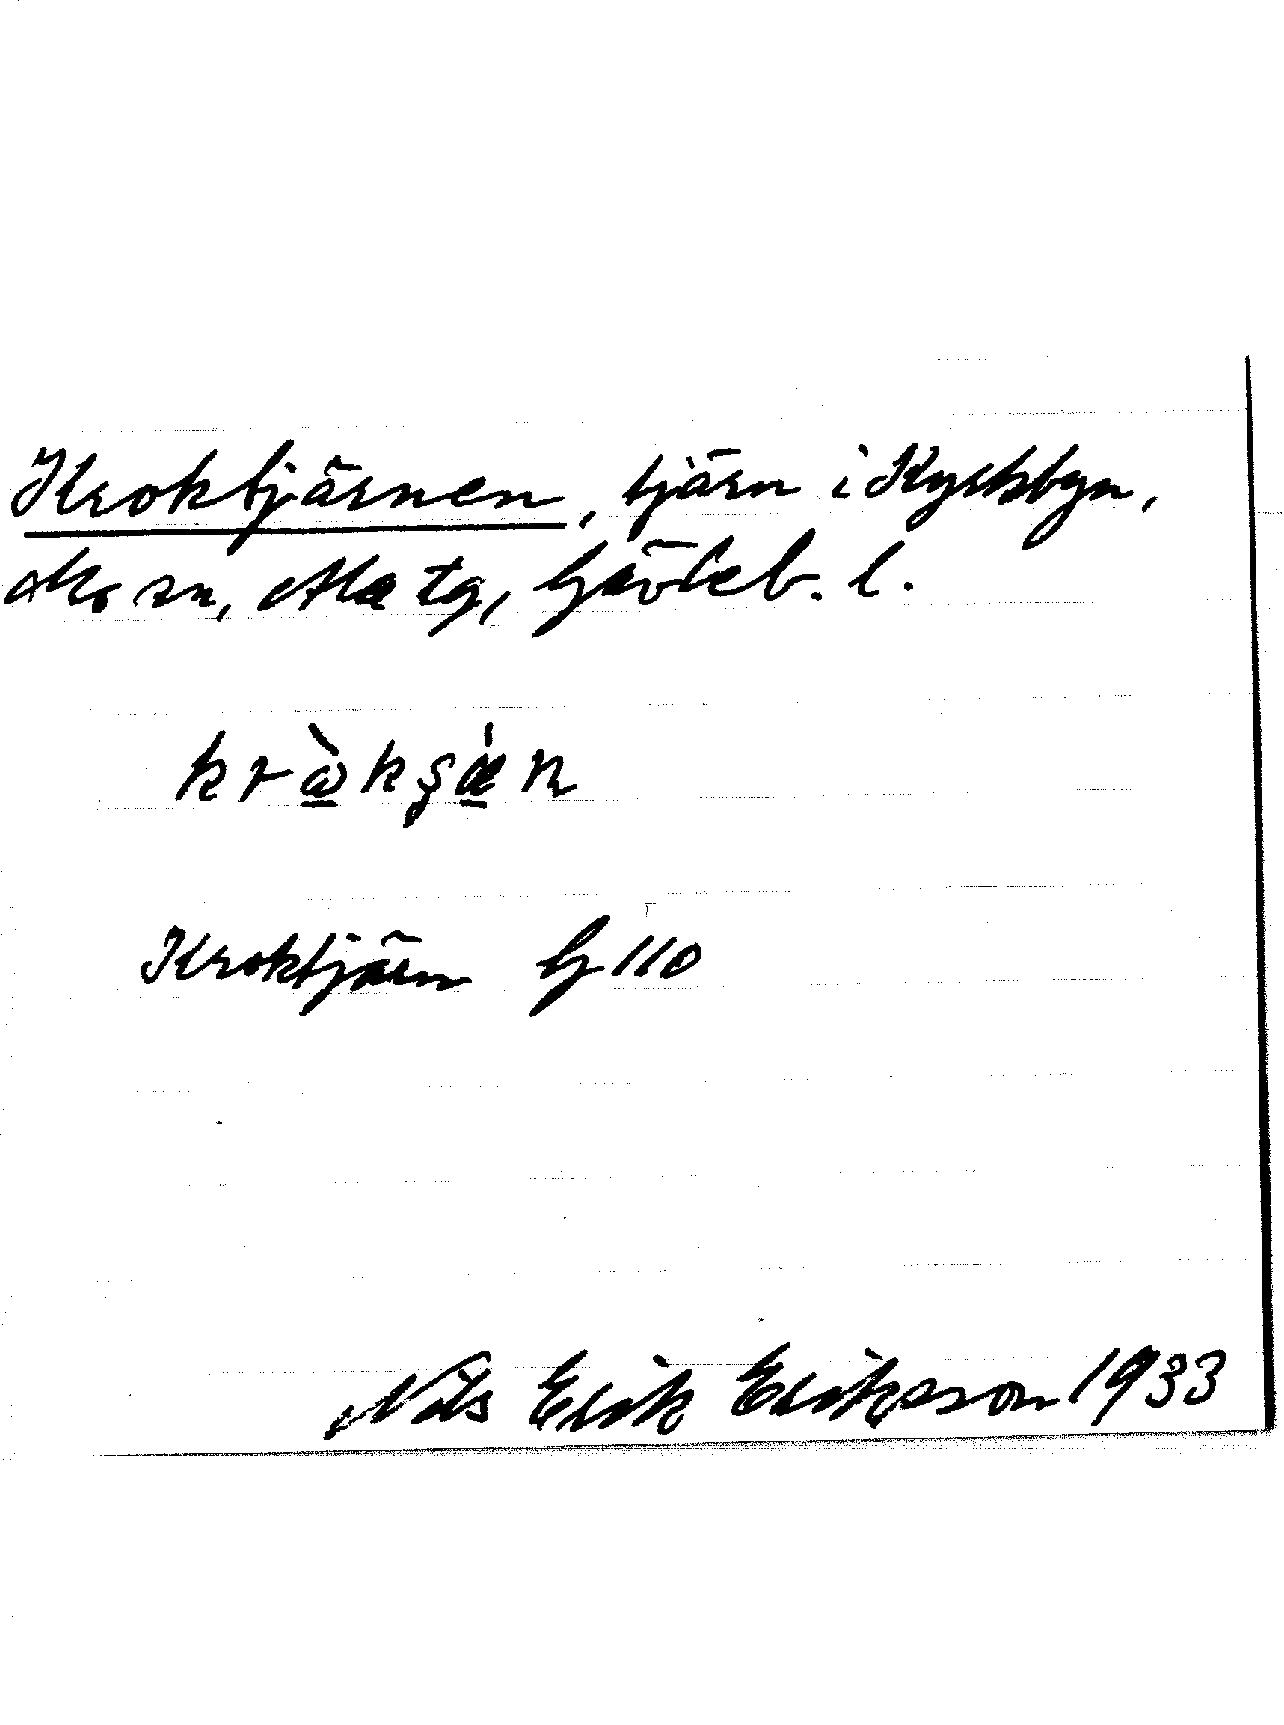 Kroktjärnen, tjärn i Kyrkbyn,
Mo sn, Ala tg, Gävleb. l.
Kroktjärn G 110
Nils Erik Erikson 1933